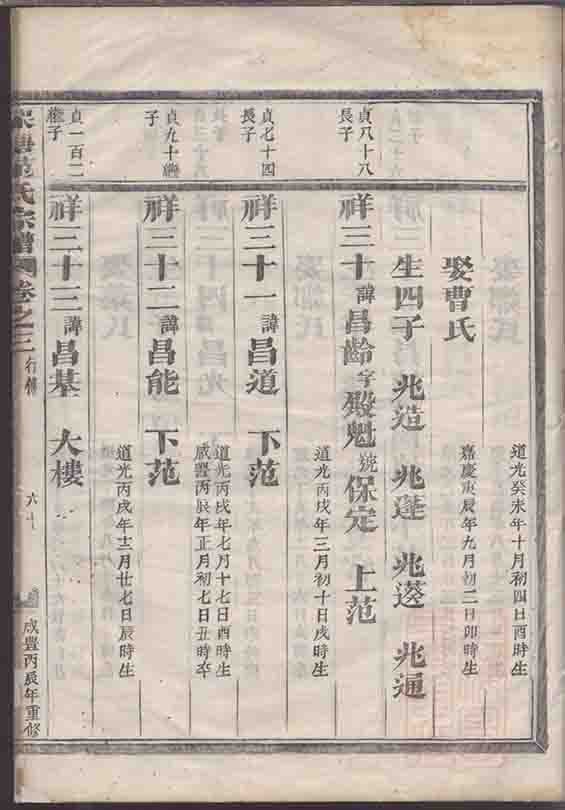 道光癸未年十月初四日酉時生
娶曹氏
嘉慶庚辰年九月初二日卯時生
生四子 兆造 兆蓬 兆遂 兆通
貞八十八
長子
祥三十諱昌齡字殿魁號保定 上范
道光丙戌年三月初十日戌時生
貞七十四
長子
祥三十一諱昌道 下范
道光丙戌年七月十七日酉時生
咸豐丙辰年正月初七日丑時卒
貞九十繼
子
祥三十二諱昌能 下范
道光丙戌年十二月廿七日辰時生
貞一百二
繼子
祥三十三諱昌基 大樓
范氏宗譜 卷之三 行傳 六十
咸豐丙辰年重修